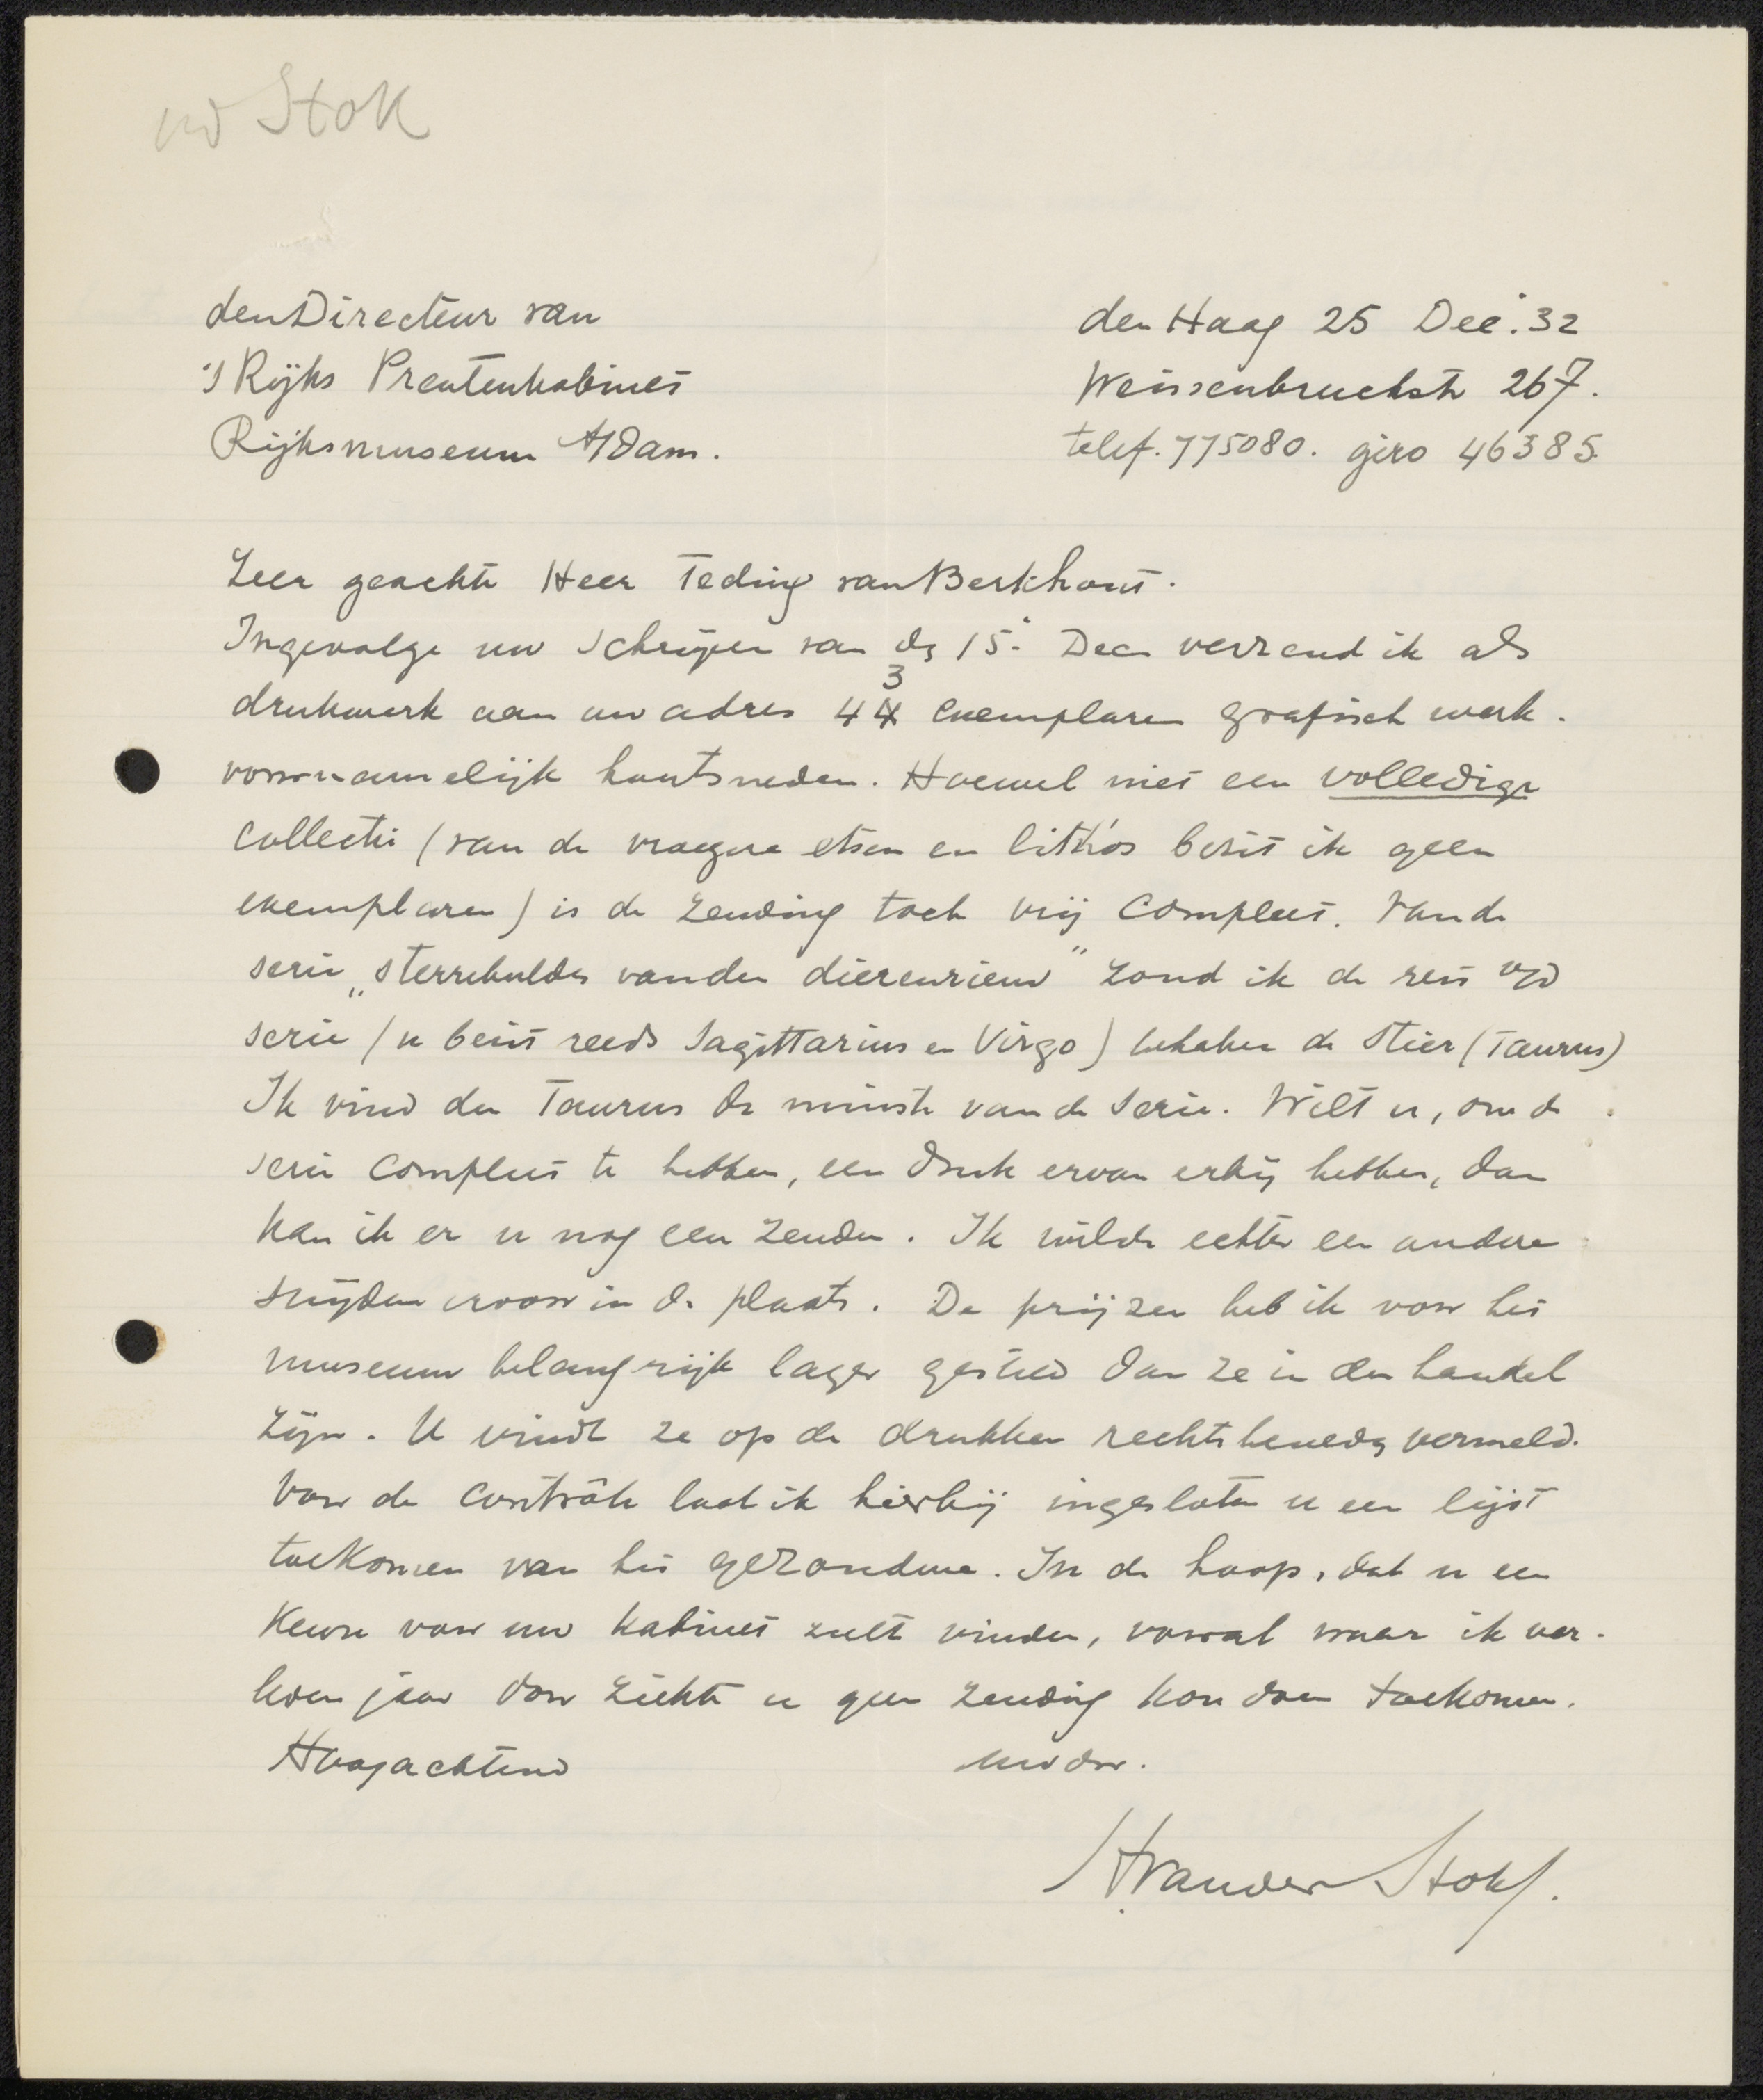 vd Stok
den Directeur van
's Rijks Prentenkabinet
Rijksmuseum A'dam.
den Haag 25 Dec. 32
Weissenbruchstr 267.
telef. 775080. giro 46385.
Zeer geachte Heer Teding van Berkhout.
Ingevolge uw schrijven van de 15e Dec verzend ik als
drukwerk aan uw adres 43 exemplaren grafisch werk.
voornamelijk houtsneden. Hoewel niet een volledige
collectie (van de vroegere etsen en litho's bezit ik geen
exemplaren) is de zending toch vrij compleet. Van de
serie „sterrebeelden van den dierenriem" zond ik de rest v/d
serie (u bezit reeds Sagittarius en Virgo) behalve de Stier (Taurus)
Ik vind den Taurus de minste van de serie. Wilt u, om de
serie compleet te hebben, een druk ervan erbij hebben, dan
kan ik er u nog een zenden. Ik wilde echter een andere
snijden ervoor in de plaats. De prijzen heb ik voor het
museum belangrijk lager gesteld dan ze in den handel
zijn. U vindt ze op de drukken rechts beneden vermeld.
Voor de contrôle laat ik hierbij ingesloten u een lijst
toekomen van het gezondene. In de hoop, dat u een
keuze voor uw kabinet zult vinden, vooral waar ik ver-
leden jaar door ziekte u geen zending kon doen toekomen.
Hoogachtend
uw dw.
H van der Stok